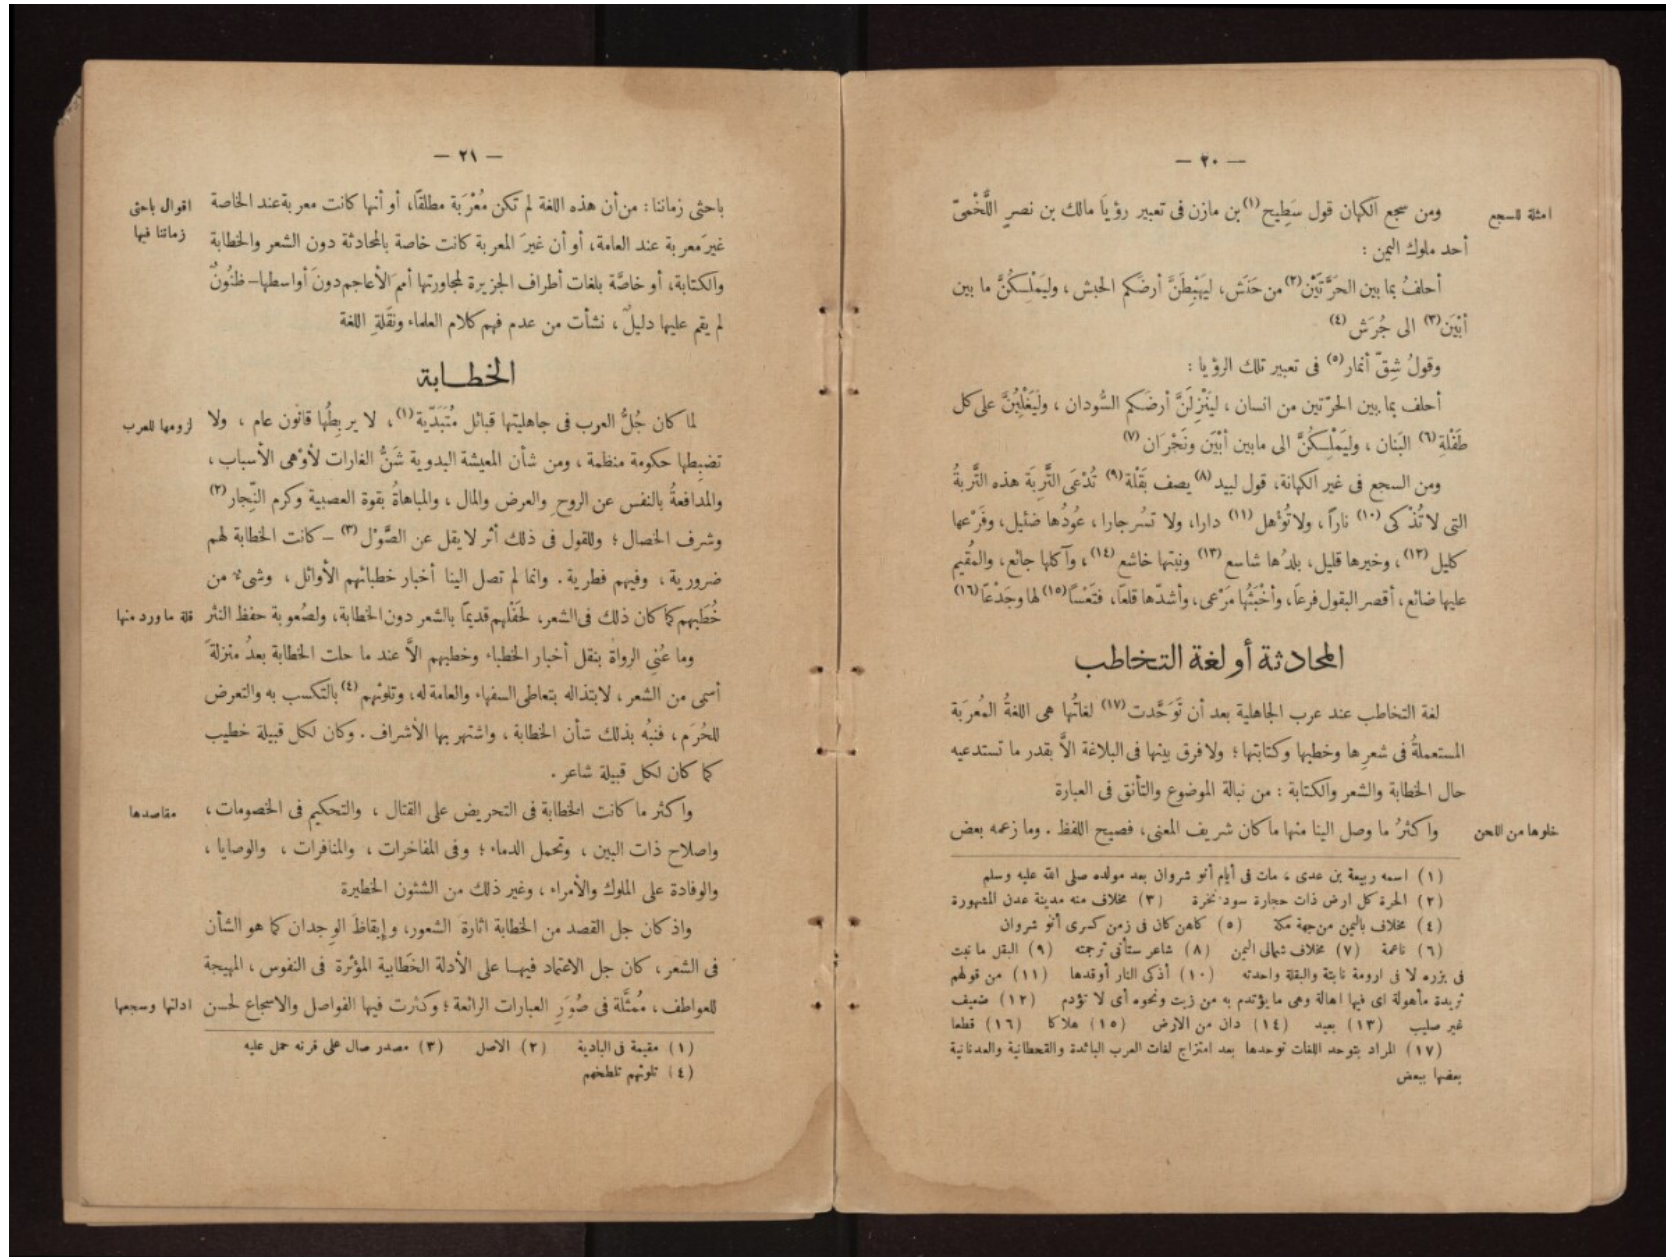 — ٢٠ —
امثلة للسجع
ومن سجع الكهان قول سَطِيح(١) بن مازن فى تعبير رؤيَا مالك بن نصرٍ اللَّخْمىّ
أحد ملوك اليمن :
أحلفُ بما بين الحَرَّتَيْن(٢) من حَنَش، ليَهْبِطَنَّ أرضَكم الحبش ، وليَمْلِكُنَّ ما بين
أبْيَن(٣) الى جُرَش(٤)
وقولُ شِقّ أنمار(٥) فى تعبير تلك الرؤيا :
أحلف بما بين الحرّتين من انسان ، ليَنْزِلَنَّ أرضَكم السُّودان ، وليَغْلِبُنَّ على كل
طَفْلةِ(٦) البَنان ، وليَمْلِكُنَّ الى مابين أبْيَن ونَجْرَان(٧)
ومن السجع فى غير الكهانة، قول لبيد(٨) يصف بَقْلة(٩) تُدْعَى التَّرِبَة هذه التَّرِبةُ
التى لا تُذْكى(١٠) ناراً، ولا تُؤْهل(١١) دارا، ولا تسُر جارا، عُودُها ضئيل، وفَرْعها
كليل(١٢)، وخيرها قليل، بلدُها شاسع(١٣) ونبتها خاشع(١٤)، وآكلها جائع، والمُقيم
عليها ضائع، أقصر البقول فرعاً، وأخْبَثُها مَرْعى، وأشدّها قلعاً، فتَعْسًا(١٥) لها وجَدْعًا(١٦)
المحادثة أو لغة التخاطب
لغة التخاطب عند عرب الجاهلية بعد أن تَوَحَّدت(١٧) لغاتُها هى اللغةُ المُعرَبة
المستعملةُ فى شعرِها وخطبها وكتابتها ؛ ولا فرق بينها فى البلاغة الاَّ بقدر ما تستدعيه
حال الخطابة والشعر والكتابة : من نبالة الموضوع والتأنق فى العبارة
خلوها من اللحن
واكثرُ ما وصل الينا منها ما كان شريف المعنى، فصيح اللفظ . وما زعمه بعض
(١) اسمه ربيعة بن عدى ، مات فى أيام أنو شروان بعد مولده صلى الله عليه وسلم
(٢) الحرة كل ارض ذات حجارة سود نخرة (٣) مخلاف منه مدينة عدن المشهورة
(٤) مخلاف باليمن من جهة مكة (٥) كاهن كان فى زمن كسرى أنو شروان
(٦) ناعمة (٧) مخلاف شمالى اليمن (٨) شاعر ستأتى ترجمته (٩) البقل ما نبت
فى بزره لا فى ارومة ثابتة والبقلة واحدته (١٠) أذكى النار أوقدها (١١) من قولهم
ثريدة مأهولة اى فيها اهالة وهى ما يؤتدم به من زيت ونحوه أى لا تؤدم (١٢) ضعيف
غير صليب (١٣) بعيد (١٤) دان من الارض (١٥) هلاكا (١٦) قطعا
(١٧) المراد بتوحد اللغات توحدها بعد امتزاج لغات العرب البائدة والقحطانية والعدنانية
بعضها ببعض
— ٢١ —
اقوال باحثى
زماننا فيها
باحثى زماننا : من أن هذه اللغة لم تكن مُعْرَبة مطلقًا، أو أنها كانت معربة عند الخاصة
غيرَ معربة عند العامة، أو أن غيرَ المعربة كانت خاصة بالمحادثة دون الشعر والخطابة
والكتابة، أو خاصَّة بلغات أطراف الجزيرة لمجاورتها أممَ الأعاجم دونَ أواسطها – ظنُونٌ
لم يقم عليها دليلٌ ، نشأت من عدم فهم كلام العلماء ونقَلةِ اللغة
الخطابة
لزومها للعرب
لما كان جُلُّ العرب فى جاهليتها قبائل مُتَبَدّية(١)، لا يربِطُها قانون عام ، ولا
تضبِطها حكومة منظمة ، ومن شأن المعيشة البدوية شَنُّ الغارات لأوْهى الأسباب ،
والمدافعةُ بالنفس عن الروح والعرض والمال ، والمباهاةُ بقوة العصبية وكرم النِّجار(٢)
وشرف الخصال ؛ وللقول فى ذلك أثر لا يقل عن الصَّوْل(٣) – كانت الخطابة لهم
ضرورية ، وفيهم فطرية . وانما لم تصل الينا أخبار خطبائهم الأوائل ، وشىء من
قلة ما ورد منها
خُطَبهم كما كان ذلك فى الشعر، لحَفْلهم قديمًا بالشعر دون الخطابة، ولصُعوبة حفظ النثر
وما عُنى الرواة بنقل أخبار الخطباء وخطبهم الاَّ عند ما حلت الخطابة بعدُ منزلةً
أسمى من الشعر ، لابتذاله بتعاطى السفهاء والعامة له، وتلوثهم(٤) بالتكسب به والتعرض
للحُرَم ، فنبُه بذلك شأن الخطابة ، واشتهر بها الأشراف . وكان لكل قبيلة خطيب
كما كان لكل قبيلة شاعر .
مقاصدها
واكثر ما كانت الخطابة فى التحريض على القتال ، والتحكيم فى الخصومات ،
واصلاح ذات البين ، وتحمل الدماء ؛ وفى المفاخرات ، والمنافرات ، والوصايا ،
والوفادة على الملوك والأمراء ، وغير ذلك من الشئون الخطيرة
واذ كان جل القصد من الخطابة اثارةَ الشعور، وإيقاظَ الوِجدان كما هو الشأن
فى الشعر ، كان جل الاعتماد فيها على الأدلة الخَطابية المؤثرة فى النفوس ، المهيجة
ادلتها وسجعها
للعواطف ، مُمثَّلة فى صُوَرِ العبارات الرائعة ؛ وكثرت فيها الفواصل والاسجاع لحسن
(١) مقيمة فى البادية (٢) الاصل (٣) مصدر صال على قرنه حمل عليه
(٤) تلوثهم تلطخهم